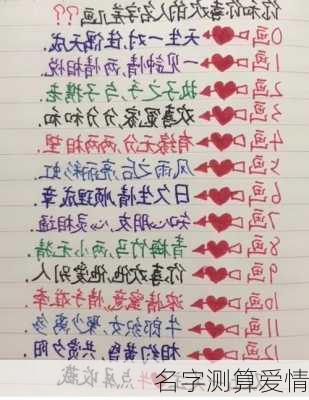 你和你喜欢的人名字差几画??
0画 天生一对,佳偶天成.
1画 一见钟情,两情相悦.
2画 执子之手,与子携老.
3画 欢喜冤家,分分和和.
4画 有缘无分,两两相望.
5画 风雨之后,亮丽彩虹.
6画 日久生情,顺理成章.
7画 知心朋友,心灵相通.
8画 青梅竹马,两小无猜.
9画 你喜欢他,他爱别人
10画 浓情蜜意,情字难牵
11画 牛郎织女,聚少离多
12画 相约黄昏,共赏夕阳
点屏收藏
名字测算爱情